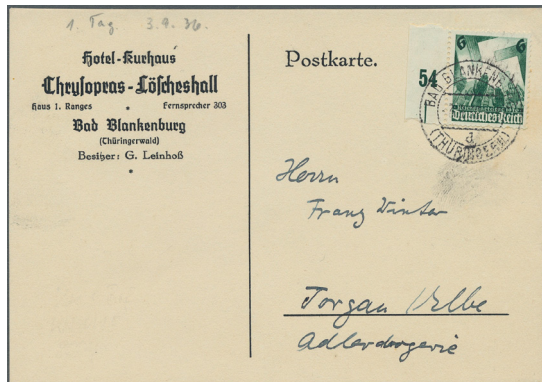 1. Tag 3.9.36.
Hotel-Kurhaus
Chrysopras-Löscheshall
Haus 1. Ranges * Fernsprecher 303
Bad Blankenburg
(Thüringerwald)
Besitzer: G. Leinhoß
Postkarte.
54
6 6
Deutsches Reich
BAD BLANKENB
d
(THÜRINGEN)
Herrn
Franz Winter
Torgau /Elbe
Adlerdrogerie